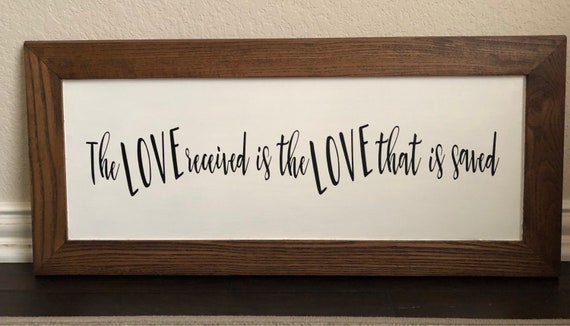 The LOVE received is the LOVE that is saved